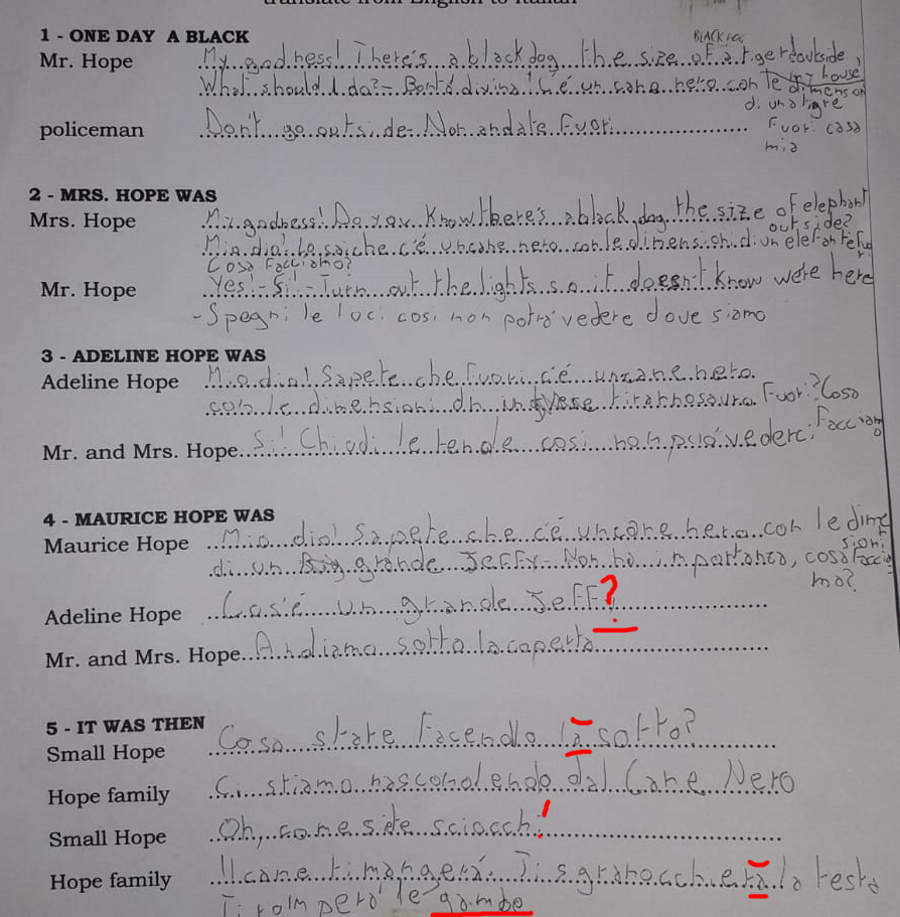 translate from English to Italian
1 - ONE DAY A BLACK
BLACK DOG
Mr. Hope My godness! There's a black dog the size of a tiger outside,
What should I do? - Bontà divina! C'é un cane nero con le dimension
my house
di una tigre
policeman Don't go outside - Non andate fuori
Fuori casa
mia
2 - MRS. HOPE WAS
Mrs. Hope My godness! Do you Know there's a black dog the size of elephant
outside?
Mio dio! Lo sai che c'é un cane nero con le dimensioni di un elefante fuo
ri
Cosa facciamo?
Mr. Hope Yes! - Sì! - Turn out the lights so it doesn't know we're here
- Spegni le luci così non potrà vedere dove siamo
3 - ADELINE HOPE WAS
Adeline Hope Mio dio! Sapete che fuori c'é un cane nero
con le dimensioni di un tirannosauro fuori? Cosa
facciamo
Mr. and Mrs. Hope Si! Chiudi le tende così non può vederci
4 - MAURICE HOPE WAS
Maurice Hope Mio dio! Sapete che c'é un cane nero con le dimen
sioni
di un grande Jeffy - Non ha importanza, cosa faccia
mo?
Adeline Hope Cos'é un grande Jeff?
Mr. and Mrs. Hope Andiamo sotto la coperta
5 - IT WAS THEN
Small Hope Cosa state facendo là sotto?
Hope family Ci stiamo nascondendo dal Cane Nero
Small Hope Oh, come siete sciocchi!
Hope family Il cane ti mangerà. Ti sgranocchierà la testa
Ti romperà le gambe